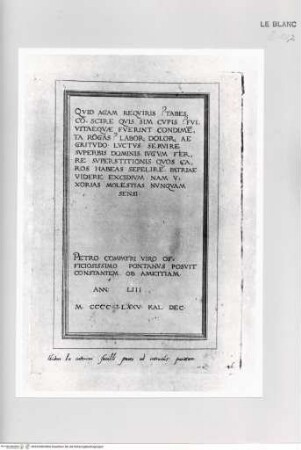 LE BLANC
QVID AGAM REQVIRIS? TABES
CO. SCIRE QVIS SIM CVPIS? FVI
VITAEQVAE FVERINT CONDIMĒ
TA ROGAS? LABOR, DOLOR, AE
GRITVDO LVCTVS SERVIRE
SVPERBIS DOMINIS IVGVM FER
RE SVPERSTITIONIS QVOS CA
ROS HABEAS SEPELIRE. PATRIAE
VIDERE EXCIDIVM NAM V
XORIAS MOLESTIAS NVNQVAM
SENSI
PETRO COMPATRI VIRO OF
FICIOSISSIMO PONTANVS POSVIT
CONSTANTEM OB AMICITIAM
ANN LIII
M CCCC LXXXV KAL DEC